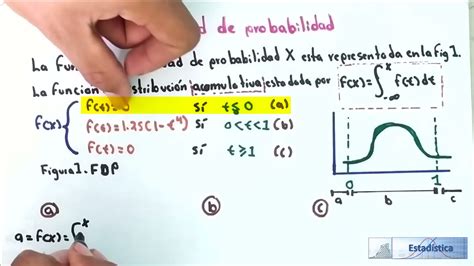 d de probabilidad
La fun ad de probabilidad X esta representada en la fig 1.
La función stribución acumulativa esta dada por
F(x)=∫ˣ₋∞ f(t)dt
f(x)
f(t)=0 Si t≤0 (a)
f(t)=1.25(1-t⁴) Si 0<t<1 (b)
f(t)=0 Si t≥1 (c)
Figura 1. FDP
0 1
a b c
a b c
a=f(x)=∫ˣ
Estadística